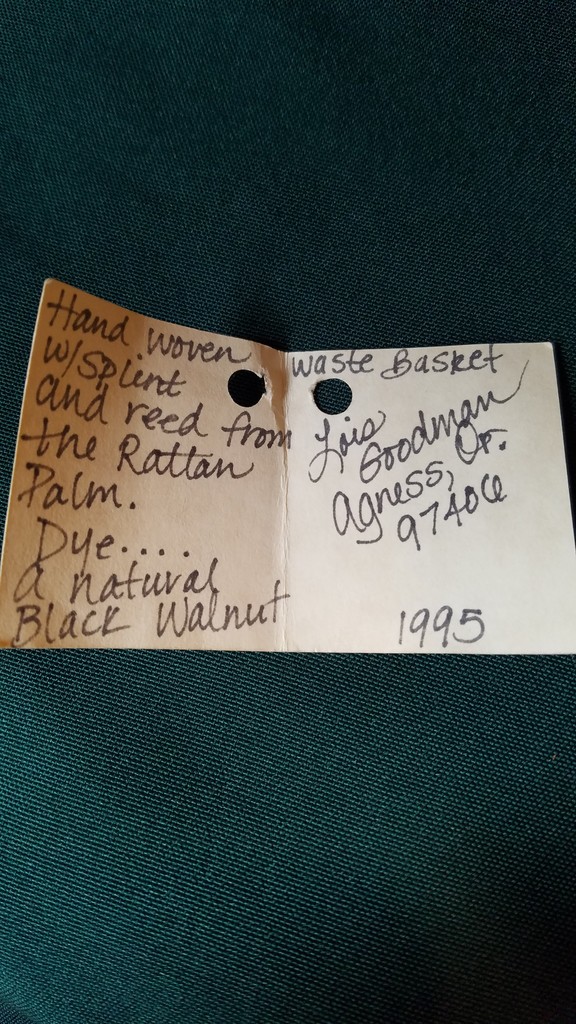 Hand woven
w/splint
and reed from
the Rattan
Palm.
Dye....
a natural
Black Walnut
waste Basket
Lois
Goodman
Agness, Or.
97406
1995